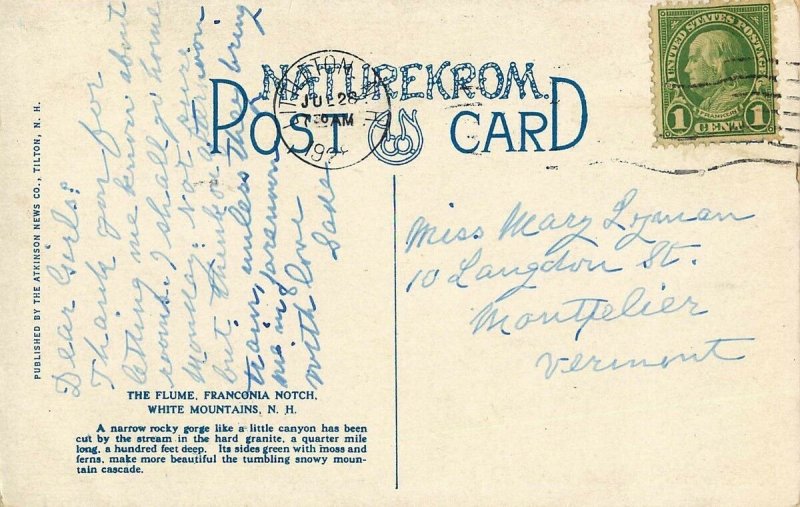 NATUREKROM
POST CARD
JUL 28
AM
UNITED STATES POSTAGE
FRANKLIN
1 CENT 1
PUBLISHED BY THE ATKINSON NEWS CO., TILTON, N. H.
Dear Girls:
Thank you for
letting me know about
rooms. I shall go home
Monday. Not sure
but think on afternoon
train, unless they bring
me in forenoon
with love
Miss Mary Lyman
10 Langdon St.
Montpelier
Vermont
THE FLUME, FRANCONIA NOTCH,
WHITE MOUNTAINS, N. H.
A narrow rocky gorge like a little canyon has been
cut by the stream in the hard granite, a quarter mile
long, a hundred feet deep. Its sides green with moss and
ferns, make more beautiful the tumbling snowy moun-
tain cascade.